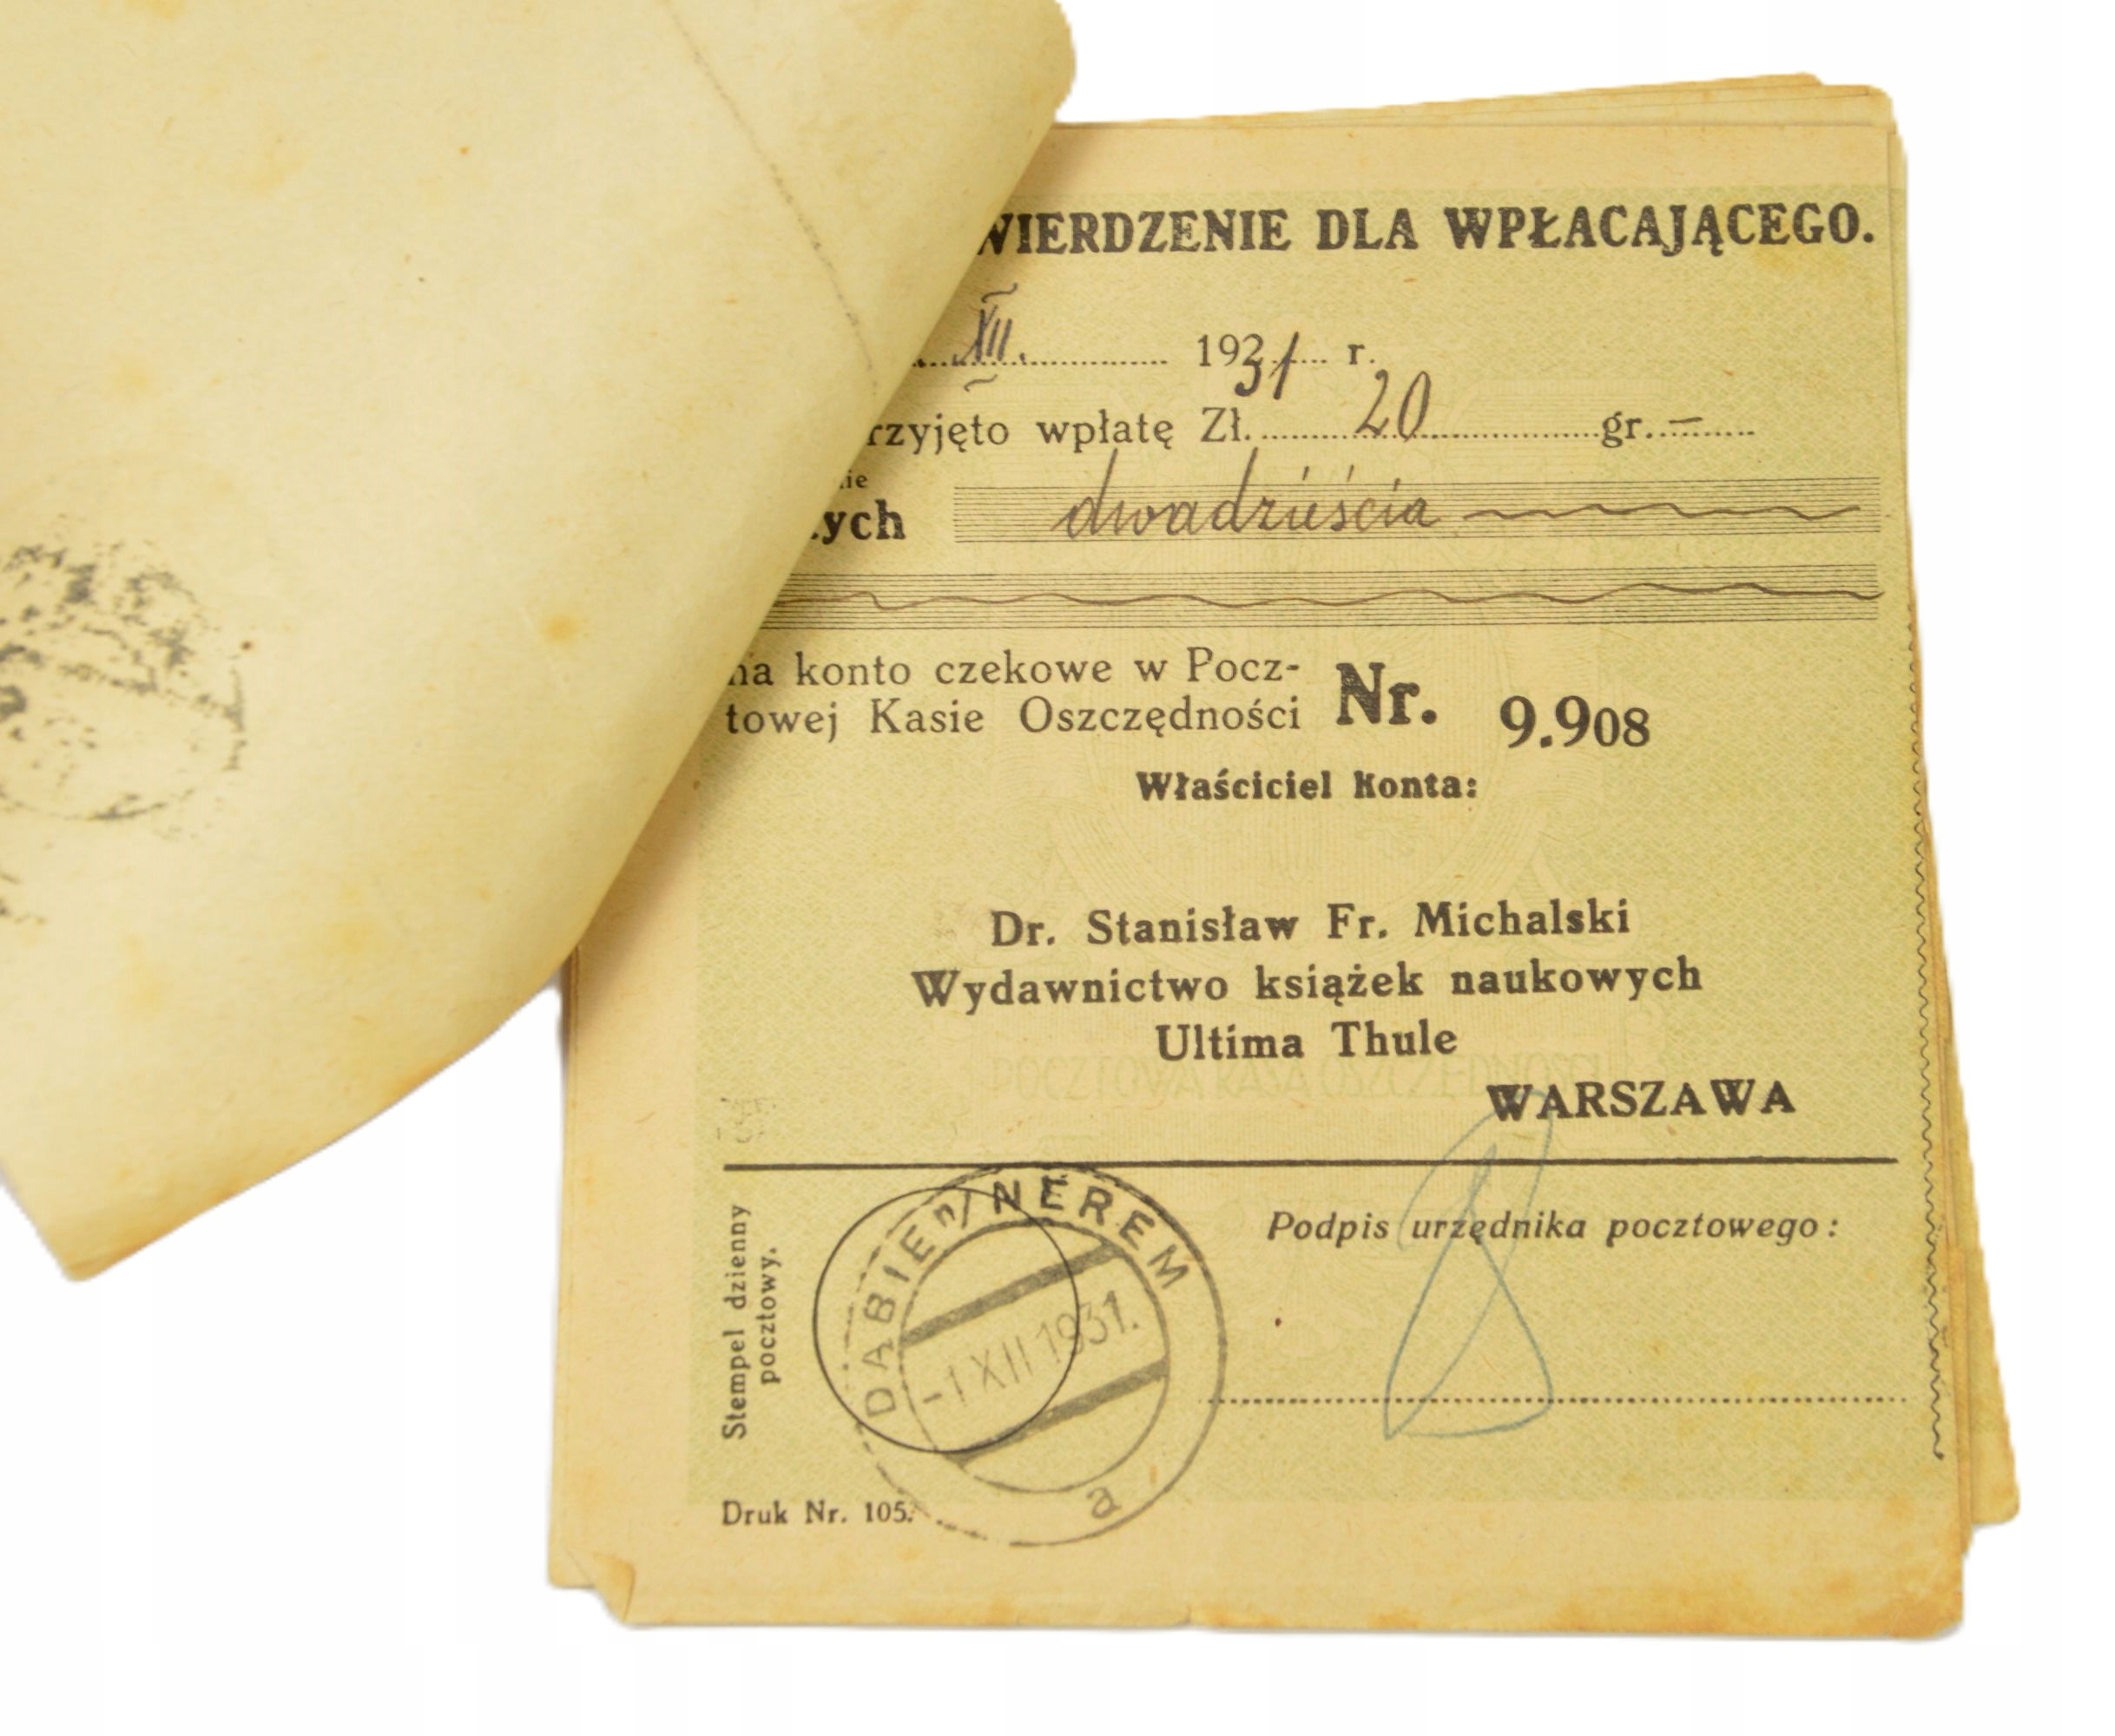 WIERDZENIE DLA WPŁACAJĄCEGO.
XII. 1931 r.
rzyjęto wpłatę Zł. 20 gr. –
nie
ych dwadzieścia
na konto czekowe w Pocz-
towej Kasie Oszczędności Nr. 9.908
Właściciel Konta:
Dr. Stanisław Fr. Michalski
Wydawnictwo książek naukowych
Ultima Thule
POCZTOWA KASA OSZCZĘDNOŚCI
WARSZAWA
Stempel dzienny
pocztowy.
DĄBIE n/NEREM
-1 XII 1931.
a
Podpis urzędnika pocztowego:
Druk Nr. 105.